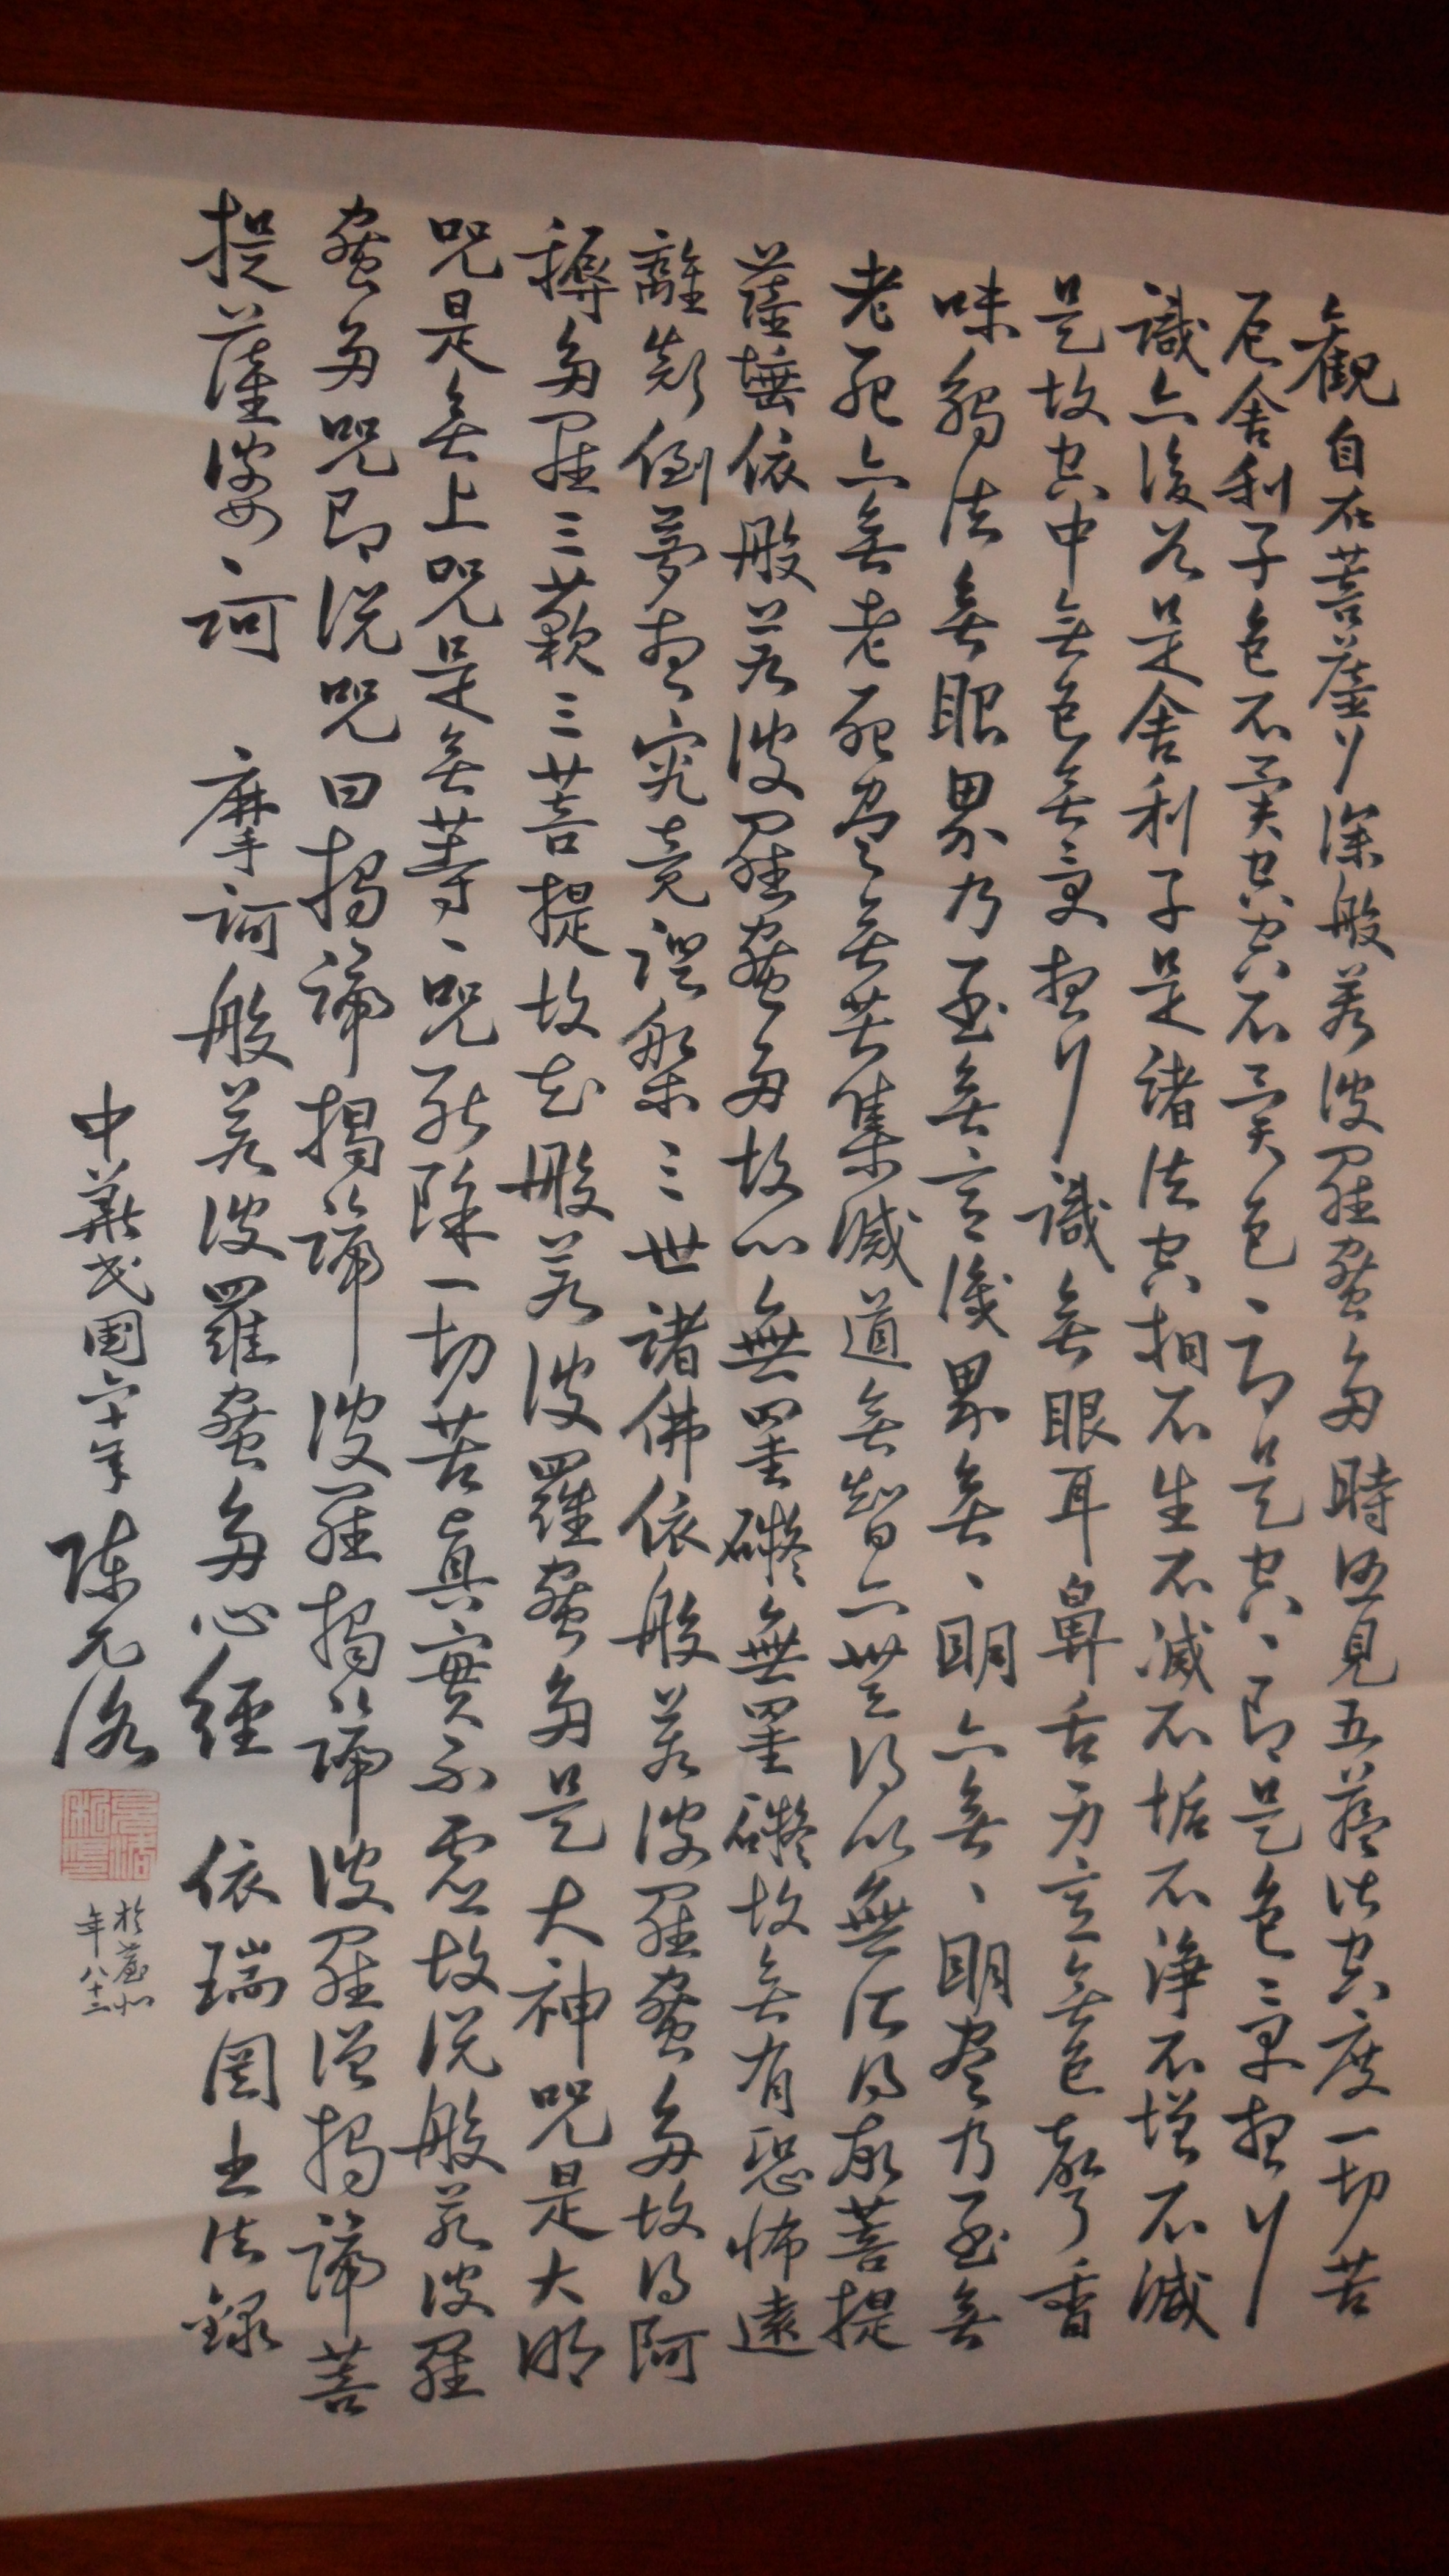 觀自在菩薩行深般若波羅蜜多時照見五蘊皆空度一切苦
厄舍利子色不異空空不異色、即是空、即是色受想行
識亦復如是舍利子是諸法空相不生不滅不垢不淨不增不減
是故空中無色無受想行識無眼耳鼻舌身意無色聲香
味觸法無眼界乃至無意識界無、明亦無、明盡乃至無
老死亦無老死盡無苦集滅道無智亦無得以無所得故菩提
薩埵依般若波羅蜜多故心無罣礙無罣礙故無有恐怖遠
離顛倒夢想究竟涅槃三世諸佛依般若波羅蜜多故得阿
耨多羅三藐三菩提故知般若波羅蜜多是大神咒是大明
咒是無上咒是無等、咒能除一切苦真實不虛故說般若波羅
蜜多咒即說咒曰揭諦揭諦波羅揭諦波羅僧揭諦菩
提薩婆、訶 摩訶般若波羅蜜多心經 依瑞圖書法錄
中華民國六十年陳元洛
年八十二